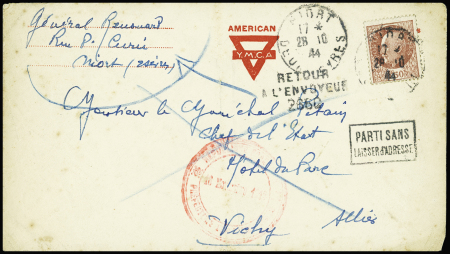 Général Renouard
Rue P. Curie
Niort
AMERICAN
Y.M.C.A
NIORT
17 *
28 10
44
DEUX-SEVRES
RETOUR
A L'ENVOYEUR
2660
NIORT
28 10
44
Monsieur le Maréchal Pétain
Chef de l'Etat
PARTI SANS
LAISSER D'ADRESSE
Hotel du Parc
Vichy Allier